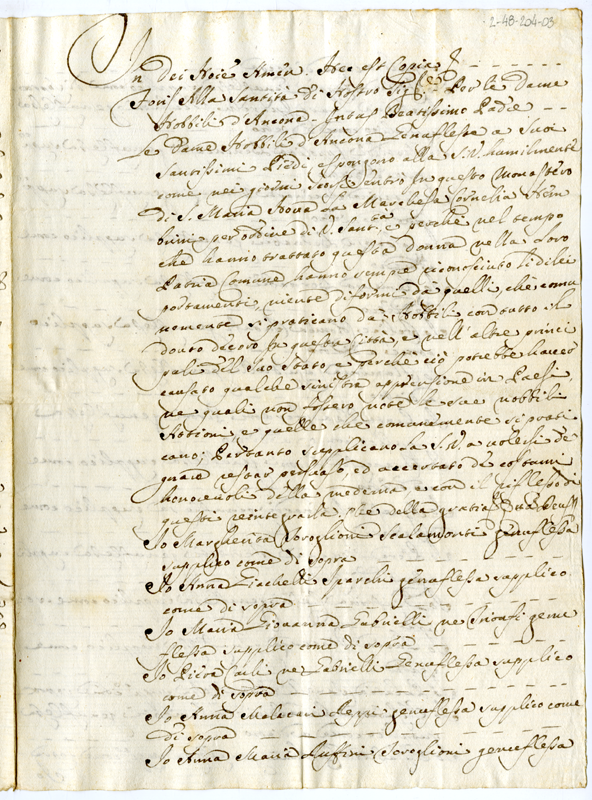 2-48-204-03
In Dei Noie Amen. Hec est Copia
Foris Alla Santità di Nostro Sig.re Per le Dame
Nobbili d'Ancona - Intus Beatissimo Padre
Le Dame Nobbili d'Ancona Genuflesse a Suoi
Santissimi Piedi espongono alla S.V. humilmente
come nei giorni scorsi entrò in questo Monastero
di S. Maria Nova la Marchesa Cornelia
per ordine di V. Sant.ta e perche nel tempo
che hanno trattato questa donna nella Loro
Patria Comune hanno sempre riconosciuto li di lei
portamenti, niente difformi da quelli, che comu
nemente si praticano da Nobbili con tutto il
douto decoro in questa Città, e nell'altre princi
pali del suo stato, e perche ciò potrebbe haver
causato qualche sinistra apprensione in Paesi
ne quali non fossero note le sue nobbili
Attioni e quelle che comunemente si prati
cano; Pertanto supplicano la S.V. a volersi de
gnare restar persuasa, ed accertata de costumi
honorevoli della medema e con il riflesso di
questi reintegrarla della gratia
Io Margherita Scalamonti genuflessa
supplico come di sopra
Io Anna Giachelli genuflessa supplico
come di sopra
Io Maria Giovanna Gabrielli ne Trionfi genu
flessa supplico come di sopra
Io Piera ne Gabrielli Genuflessa supplico
come di sopra
Io Anna genuflessa supplico come
di sopra
Io Anna Maria genuflessa